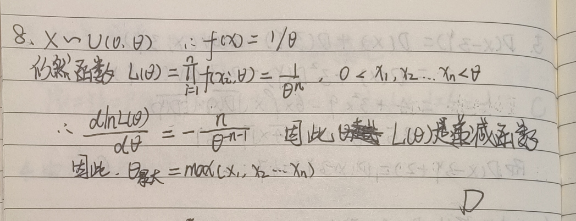 8、X ~ U(0, θ) ∴ f(x) = 1/θ
似然函数 L(θ) = ∏_{i=1}^{n} f(x_i, θ) = 1/θ^n , 0 < x_1, x_2 … x_n < θ
∴ dlnL(θ)/dθ = - n/θ^{n-1} 因此 L(θ)是单减函数
因此, θ_{最大} = max(x_1, x_2 … x_n)
D